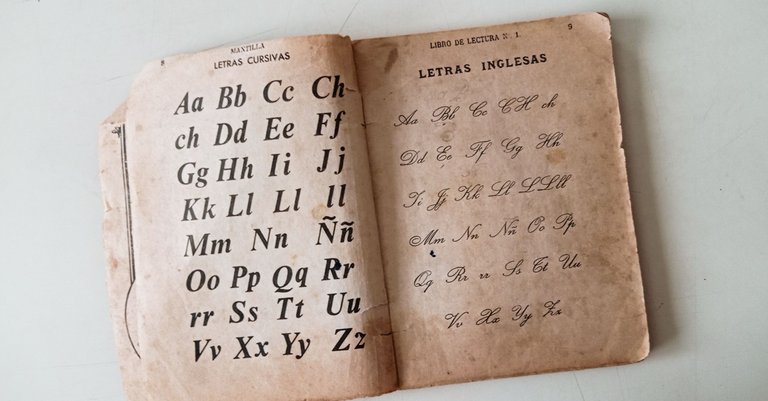 8
MANTILLA
LETRAS CURSIVAS
Aa Bb Cc Ch
ch Dd Ee Ff
Gg Hh Ii Jj
Kk Ll Ll ll
Mm Nn Ññ
Oo Pp Qq Rr
rr Ss Tt Uu
Vv Xx Yy Zz
LIBRO DE LECTURA N. 1.
9
LETRAS INGLESAS
Aa Bb Cc CH ch
Dd Ee Ff Gg Hh
Ii Jj Kk Ll LL ll
Mm Nn Ññ Oo Pp
Qq Rr rr Ss Tt Uu
Vv Xx Yy Zz